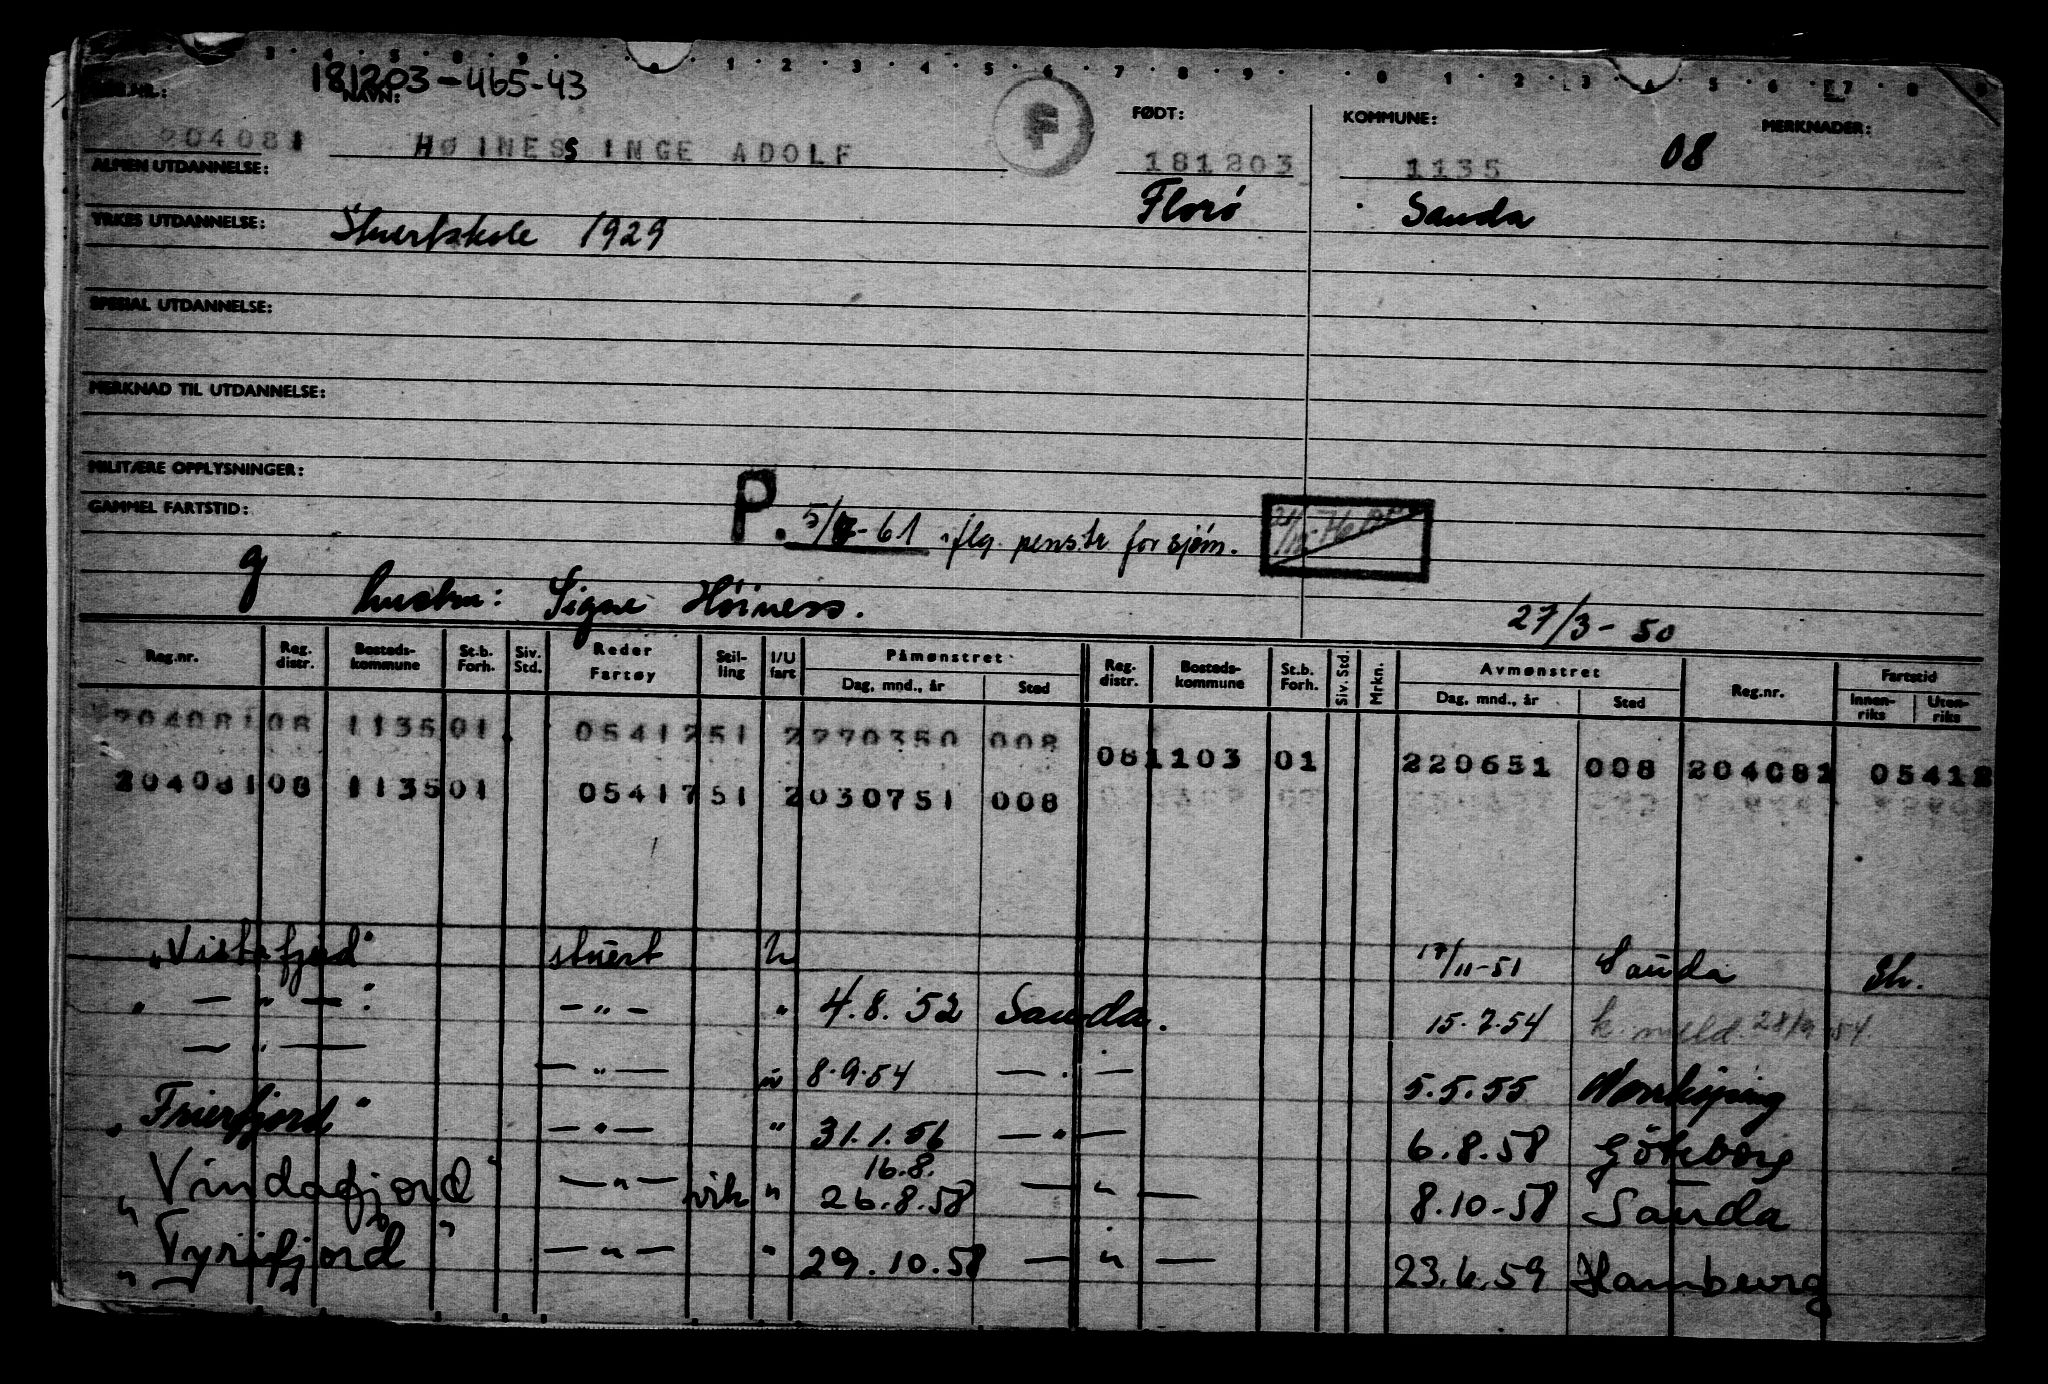 181203-465-43
NAVN: FØDT: KOMMUNE: MERKNADER:
204081 HØINESS INGE ADOLF F 181203 1135 08
ALMEN UTDANNELSE: Florø Sauda
YRKES UTDANNELSE: Stuertskole 1929
SPESIAL UTDANNELSE:
MERKNAD TIL UTDANNELSE:
MILITÆRE OPPLYSNINGER:
GAMMEL FARTSTID: P. 5/ -61 iflg. penstr. for sjøm.
g hustru: Signe Høiness. 27/3-50
Reg.nr. Reg. distr. Bosteds-kommune St.b. Forh. Siv. Std. Reder Fartøy Stil-ling I/U fart Påmønstret Dag, mnd., år Sted Reg. distr. Bosteds-kommune St.b. Forh. Siv. Std. Mrkn. Avmønstret Dag, mnd., år Sted Reg.nr. Fartstid Innen-riks Uten-riks
204081 08 1135 01 0541251 2 270350 008 081103 01 220651 008 204081 05412
204081 08 1135 01 0541751 2 030751 008
"Vistafjord" stuert u 17/11-51 Sauda Sh.
" — " — " — " — " 4.8.52 Sauda. 15.7.54 k. meld. 28/9 54.
— " — — " — u 8.9.54 — " — 5.5.55 Norrköping
"Frierfjord" — " — " 31.1.56 — " — 6.8.58 Göteborg
16.8.
"Vindafjord" — " — vik " 26.8.58 — " — 8.10-58 Sauda
"Tyrifjord" — " — " 29.10.58 — " — 23.6.59 Hamburg